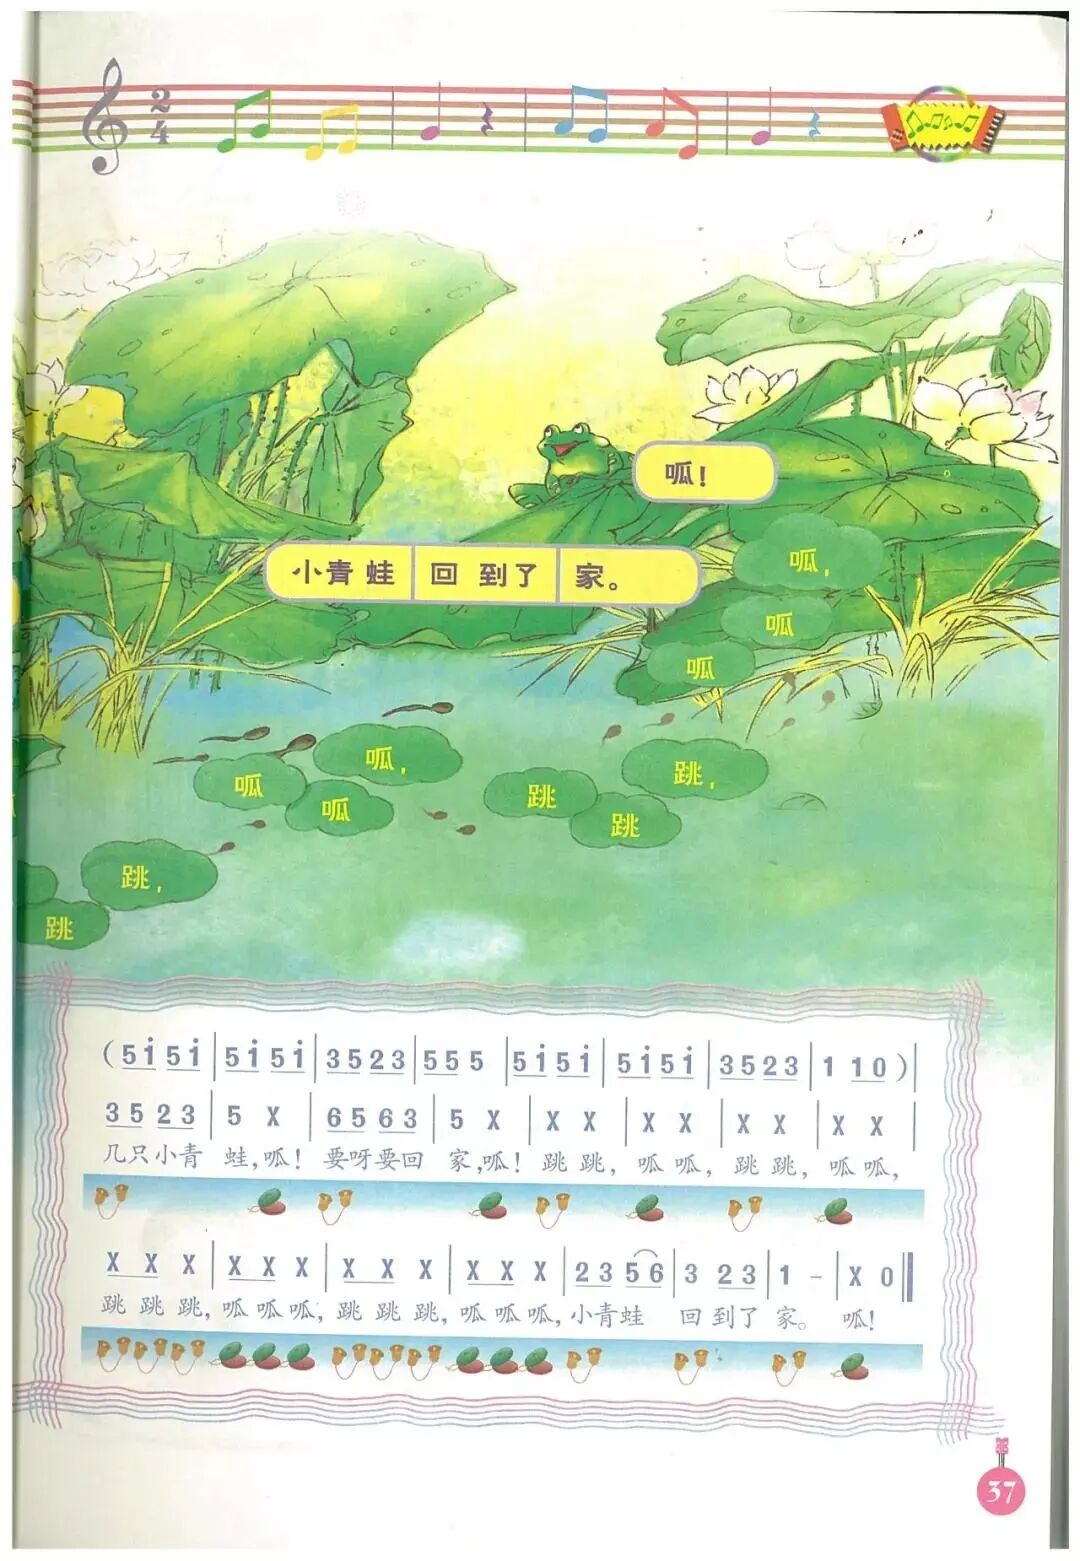 2
4
呱!
小青蛙 | 回 到了 | 家。
呱,
呱
呱
呱 呱 呱,
跳 跳 跳,
跳,
跳
(5i 5i | 5i 5i | 3523 | 555 5 | 5i5i | 5i5i | 3523 | 1 10)|
35 23 | 5 X | 65 63 | 5 X | X X | X X | X X | X X |
几只小青 蛙,呱! 要呀要回 家,呱! 跳跳, 呱呱, 跳跳, 呱呱,
X X X | X X X | X X X | X X X | 23 56 | 3 23 | 1 - | X 0 ‖
跳跳跳, 呱呱呱, 跳跳跳, 呱呱呱, 小青蛙 回到了 家。 呱!
37